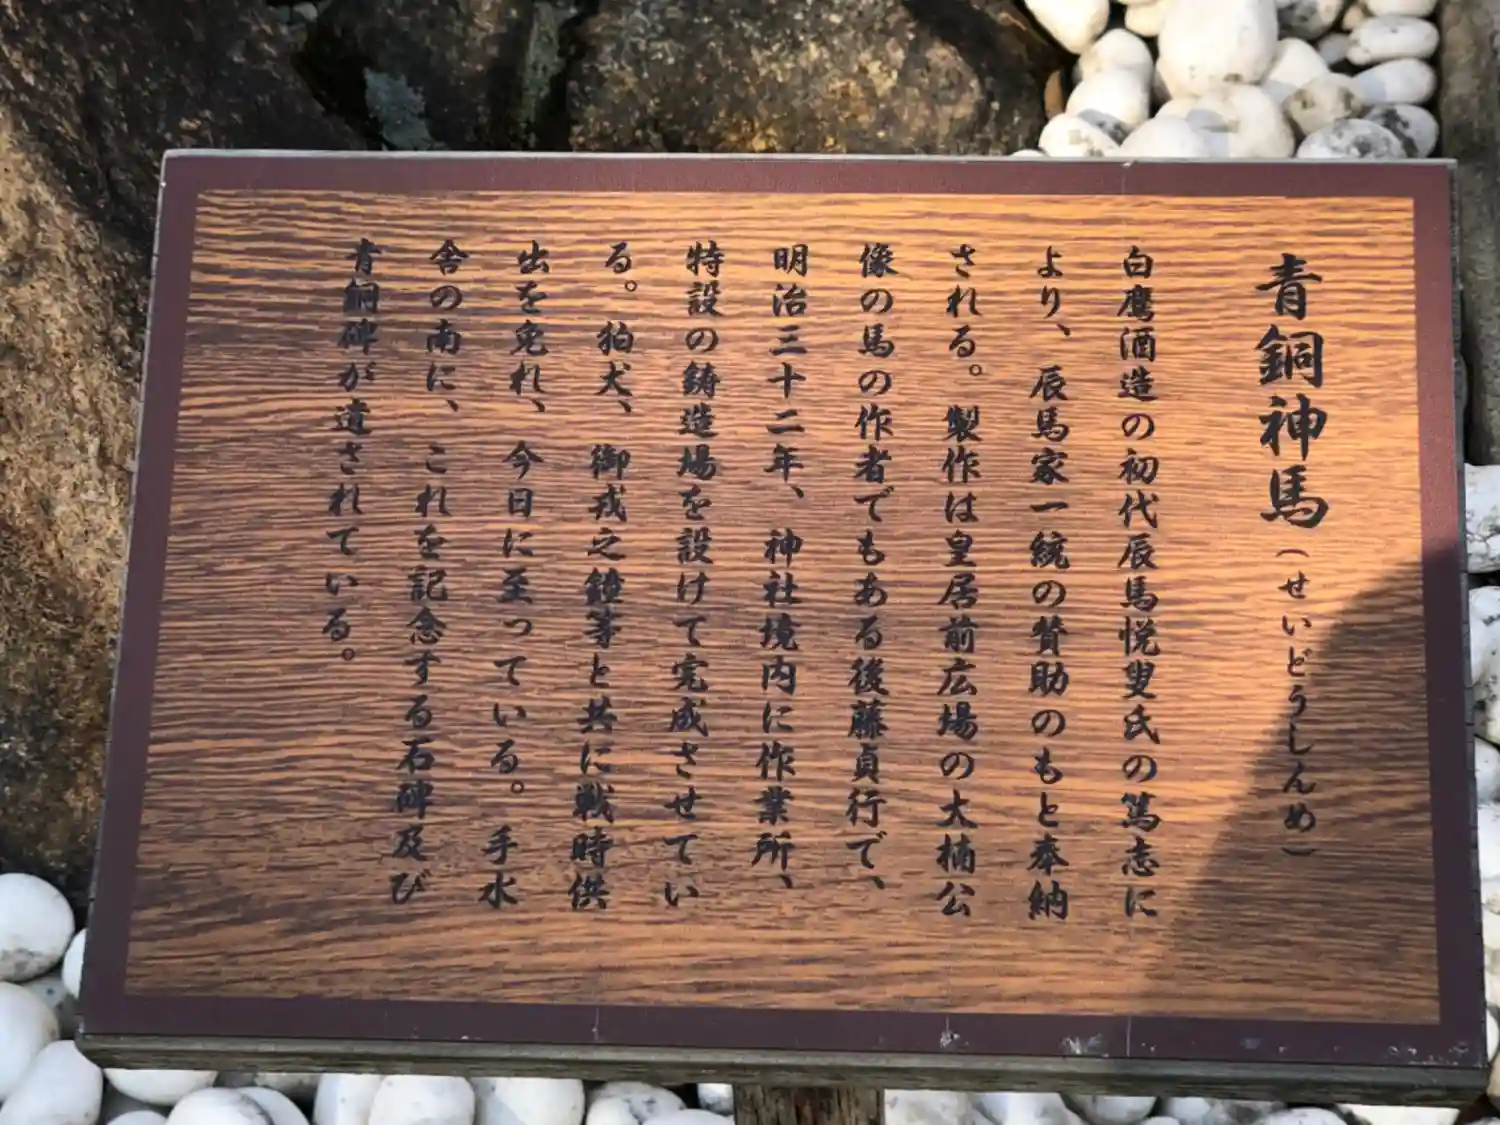 青銅神馬(せいどうしんめ)
白鹰酒造の初代辰馬悦叟氏の篤志に
より、辰馬家一統の賛助のもと奉納
される。製作は皇居前広場の大楠公
像の馬の作者でもある後藤貞行で、
明治三十二年、神社境内に作業所、
特設の鋳造場を設けて完成させてい
る。狛犬、御戎之鐘等と共に戦時供
出を免れ、今日に至っている。手水
舎の南に、これを記念する石碑及び
青銅碑が遺されている。